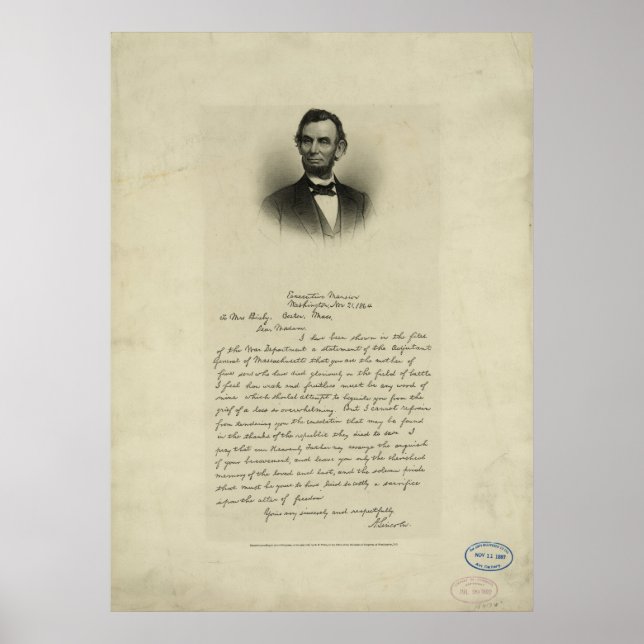 Executive Mansion
Washington, Nov 21, 1864
To Mrs Bixby, Boston, Mass,
Dear Madam.
I have been shown in the files
of the War Department a statement of the Adjutant
General of Massachusetts that you are the mother of
five sons who have died gloriously on the field of battle
I feel how weak and fruitless must be any word of
mine which should attempt to beguile you from the
grief of a loss so overwhelming. But I cannot refrain
from tendering you the consolation that may be found
in the thanks of the republic they died to save I
pray that our Heavenly Father may assuage the anguish
of your bereavement, and leave you only the cherished
memory of the loved and lost, and the solemn pride
that must be yours to have laid so costly a sacrifice
upon the altar of freedom
Yours very sincerely and respectfully
A. Lincoln.
NOV 11 1887
JUL